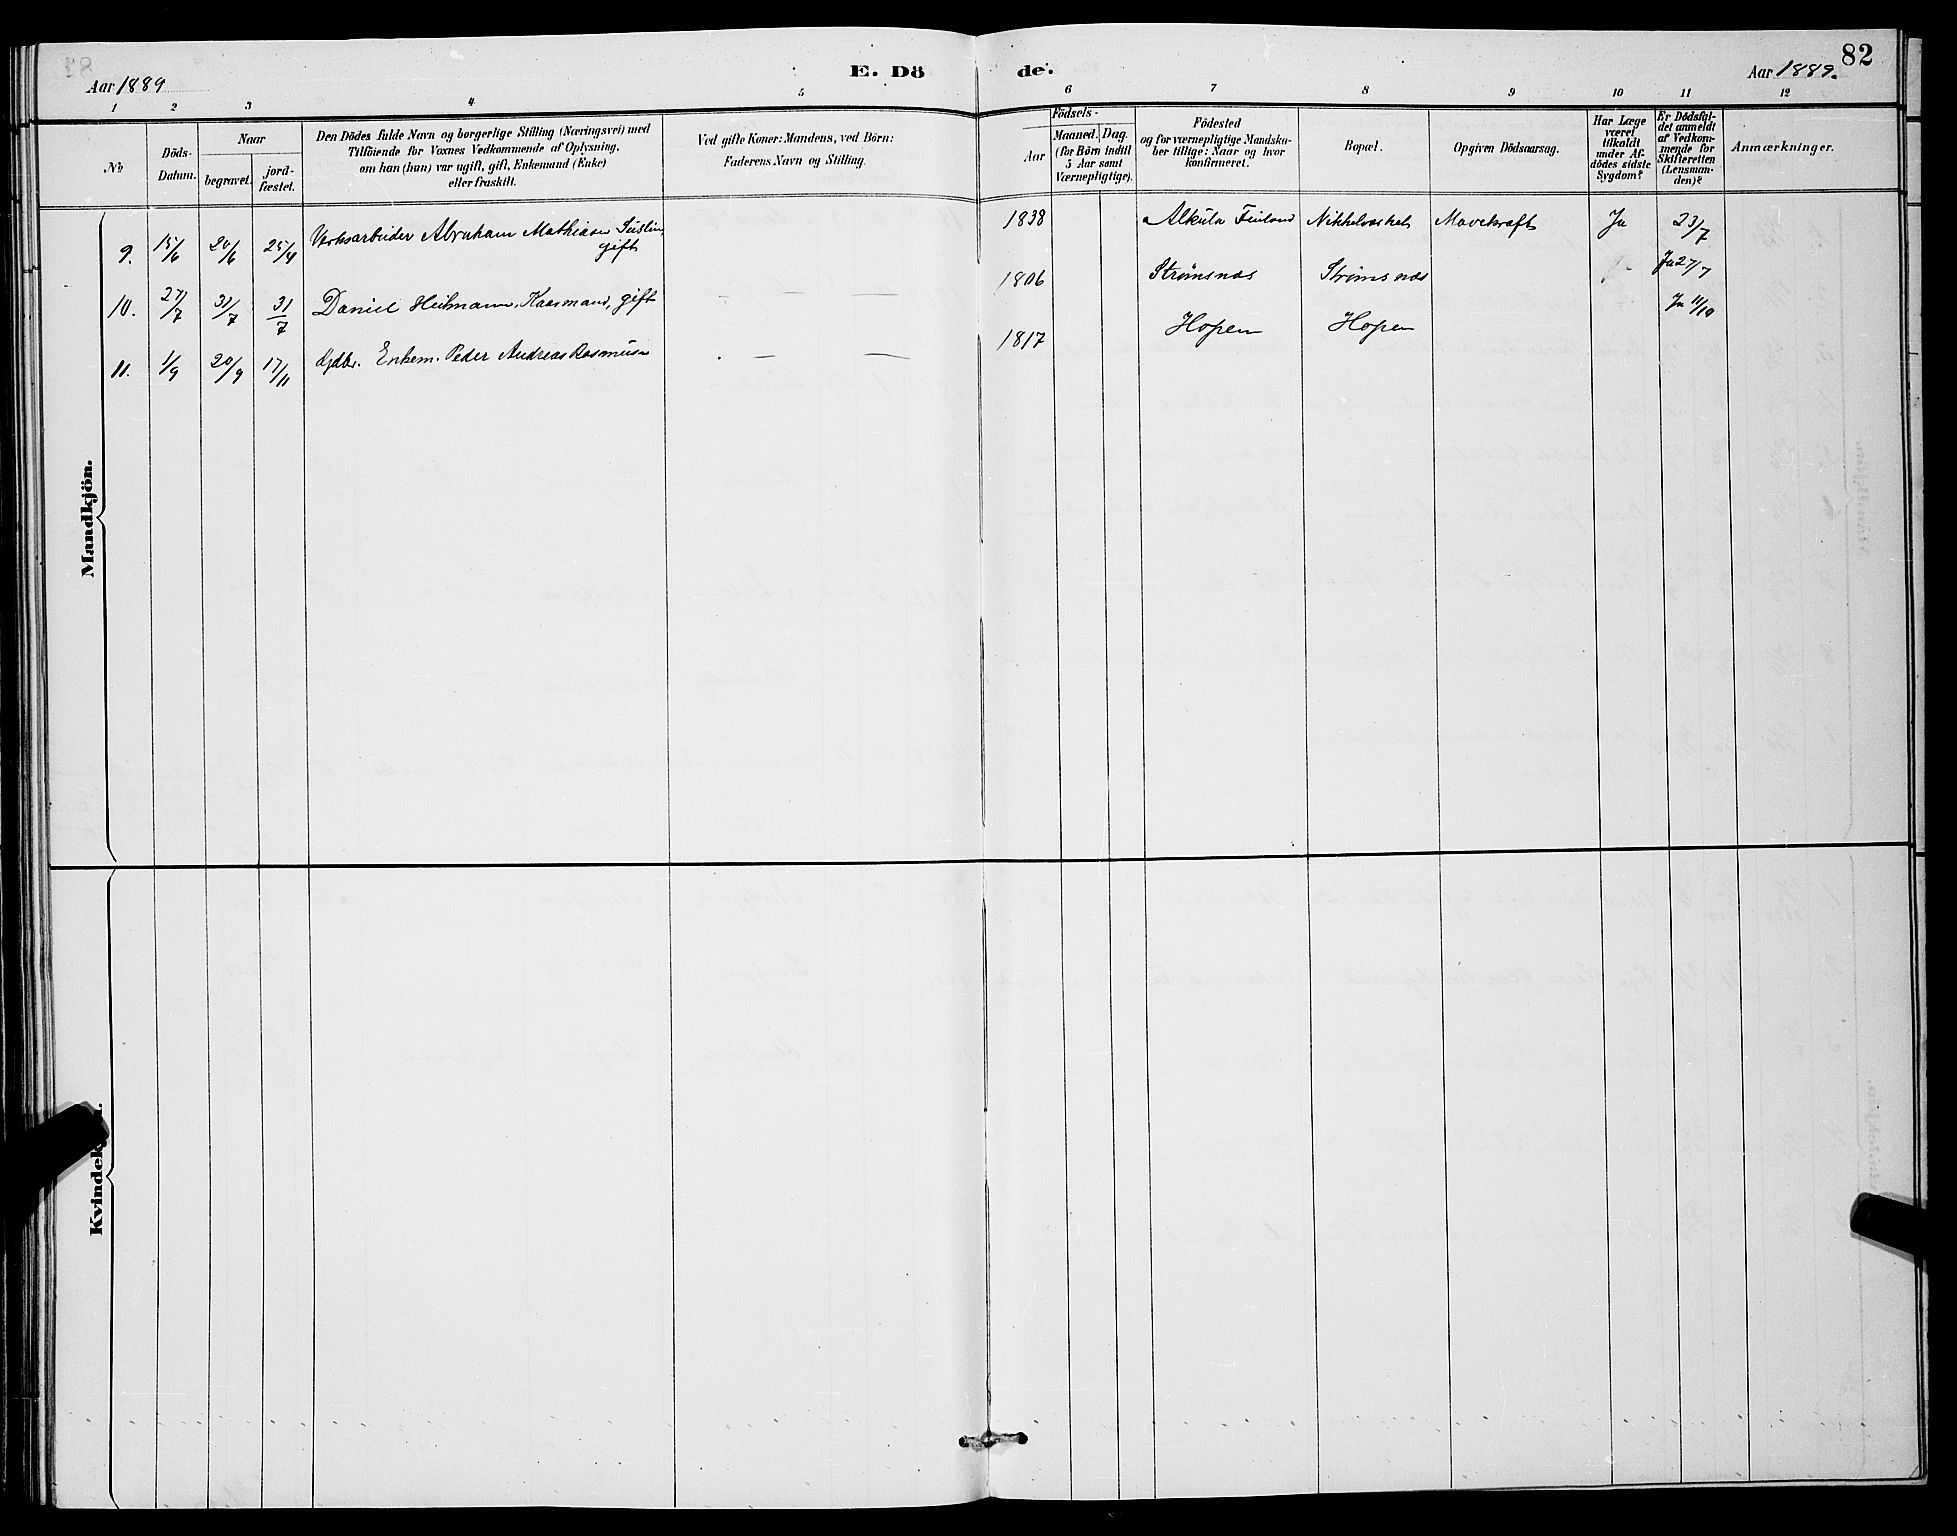 82
Aar 1889
E. Dö
de.
Aar 1889.
1 2 3 4 5 6 7 8 9 10 11 12
No
Döds-
Datum.
Naar
begravet.
jord-
fæstet.
Den Dödes fulde Navn og borgerlige Stilling (Næringsvei) med
Tilföiende for Voxnes Vedkommende af Oplysning,
om han (hun) var ugift, gift, Enkemand (Enke)
eller fraskilt.
Ved gifte Koner: Mandens, ved Börn:
Faderens Navn og Stilling.
Födsels-
Aar
Maaned.
Dag.
(for Börn indtil
5 Aar samt
Værnepligtige).
Födested
og for værnepligtige Mandska-
ber tillige: Naar og hvor
konfirmeret.
Bopæl.
Opgiven Dödsaarsag.
Har Læge
været
tilkaldt
under Af-
dödes sidste
Sygdom?
Er Dödsfal-
det anmeldt
af Vedkom-
mende for
Skifteretten
(Lensman-
den)?
Anmærkninger.
Mandkjön.
9. 15/6 20/6 25/4 Verksarbeider Abraham Mathiasen
gift
1838 Alkula Finland Nikkelverket Ja 23/7
10. 27/7 31/7 31/7 Daniel Heitmann, Kaarmand, gift — —
1806 Strömsnæs Strömsnæs Ja 27/7
11. 1/9 20/9 17/11 Enkem. Peder Andreas Rasmusen — —
1817 Hopen Hopen Ja 11/10